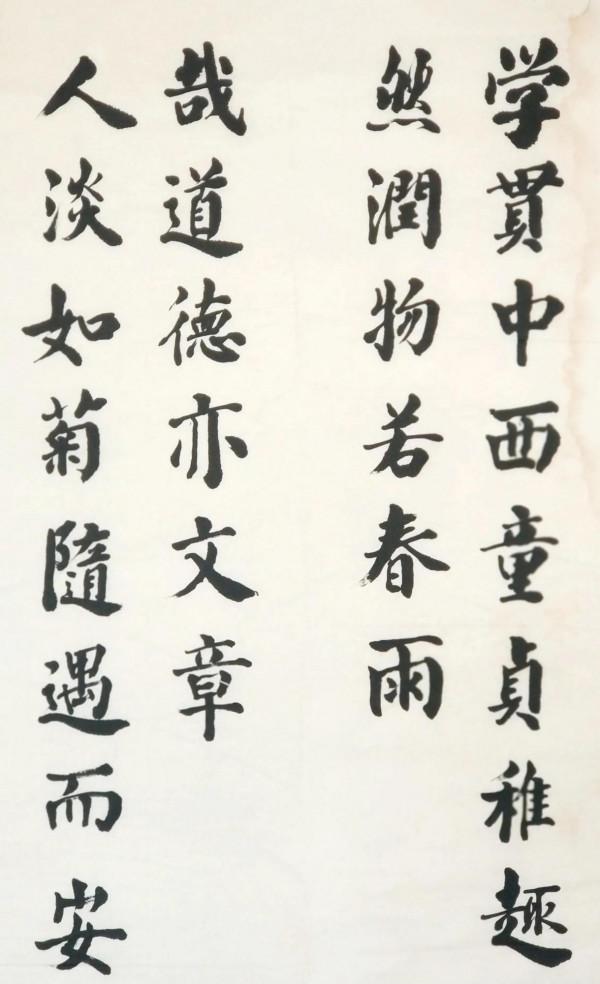 学貫中西童貞稚趣
然潤物若春雨
人淡如菊隨遇而安
哉道德亦文章